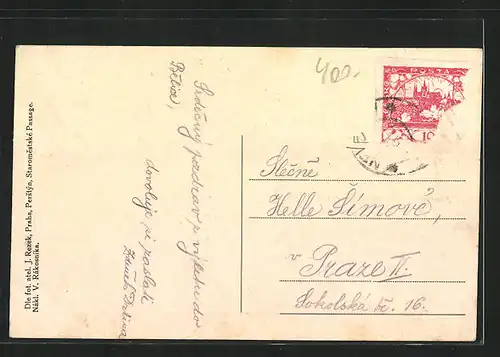 Dle fot. atel. J. Rezek, Praha, Perštýn, Staroměstské Passage.
Nákl. V. Rákosníka.
Srdečný pozdrav z výletu do
dovoluje si zaslati
400.-
POŠTA
10
Slečně
Helle Šímové,
v Praze II.
Sokolská tř. 16.